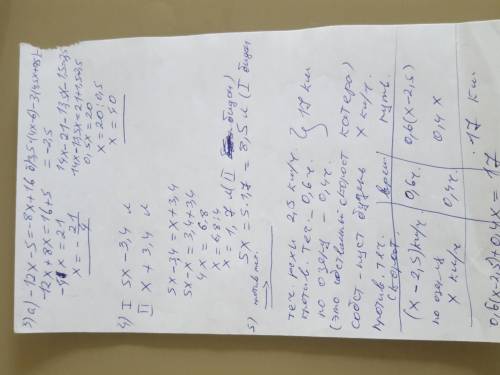 3) а) -12x-5=-8x+16
-12x+8x=16+5
-4x=21
x=-21/4
б) 3,5(4x-6)-3(4,5x+
=-2,5
14x-21-13,5x-1,5=
14x-13,5x=21+1,5
0,5x=20
x=20:0,5
x=40
4) I 5x-3,4 л
II x+3,4 л
5x-3,4=x+3,4
5x-x=3,4+3,4
4x=6,8
x=6,8:4
x=1,7 л (II бидон)
5x=5·1,7=8,5 л (I бидон
5)
теч. реки 2,5 км/ч.
против. теч. - 0,6ч.
по озеру - 0,4ч. } 17 км
(это собственный скорост
собст - пуст будет катера)
x км/ч.
против. теч. скорост. | врем | путь.
(x-2,5) км/ч. | 0,6ч. | 0,6(x-2,5)
по озеру x км/ч | 0,4ч. | 0,4x
17 км
0,6(x-2,5)+0,4x=17